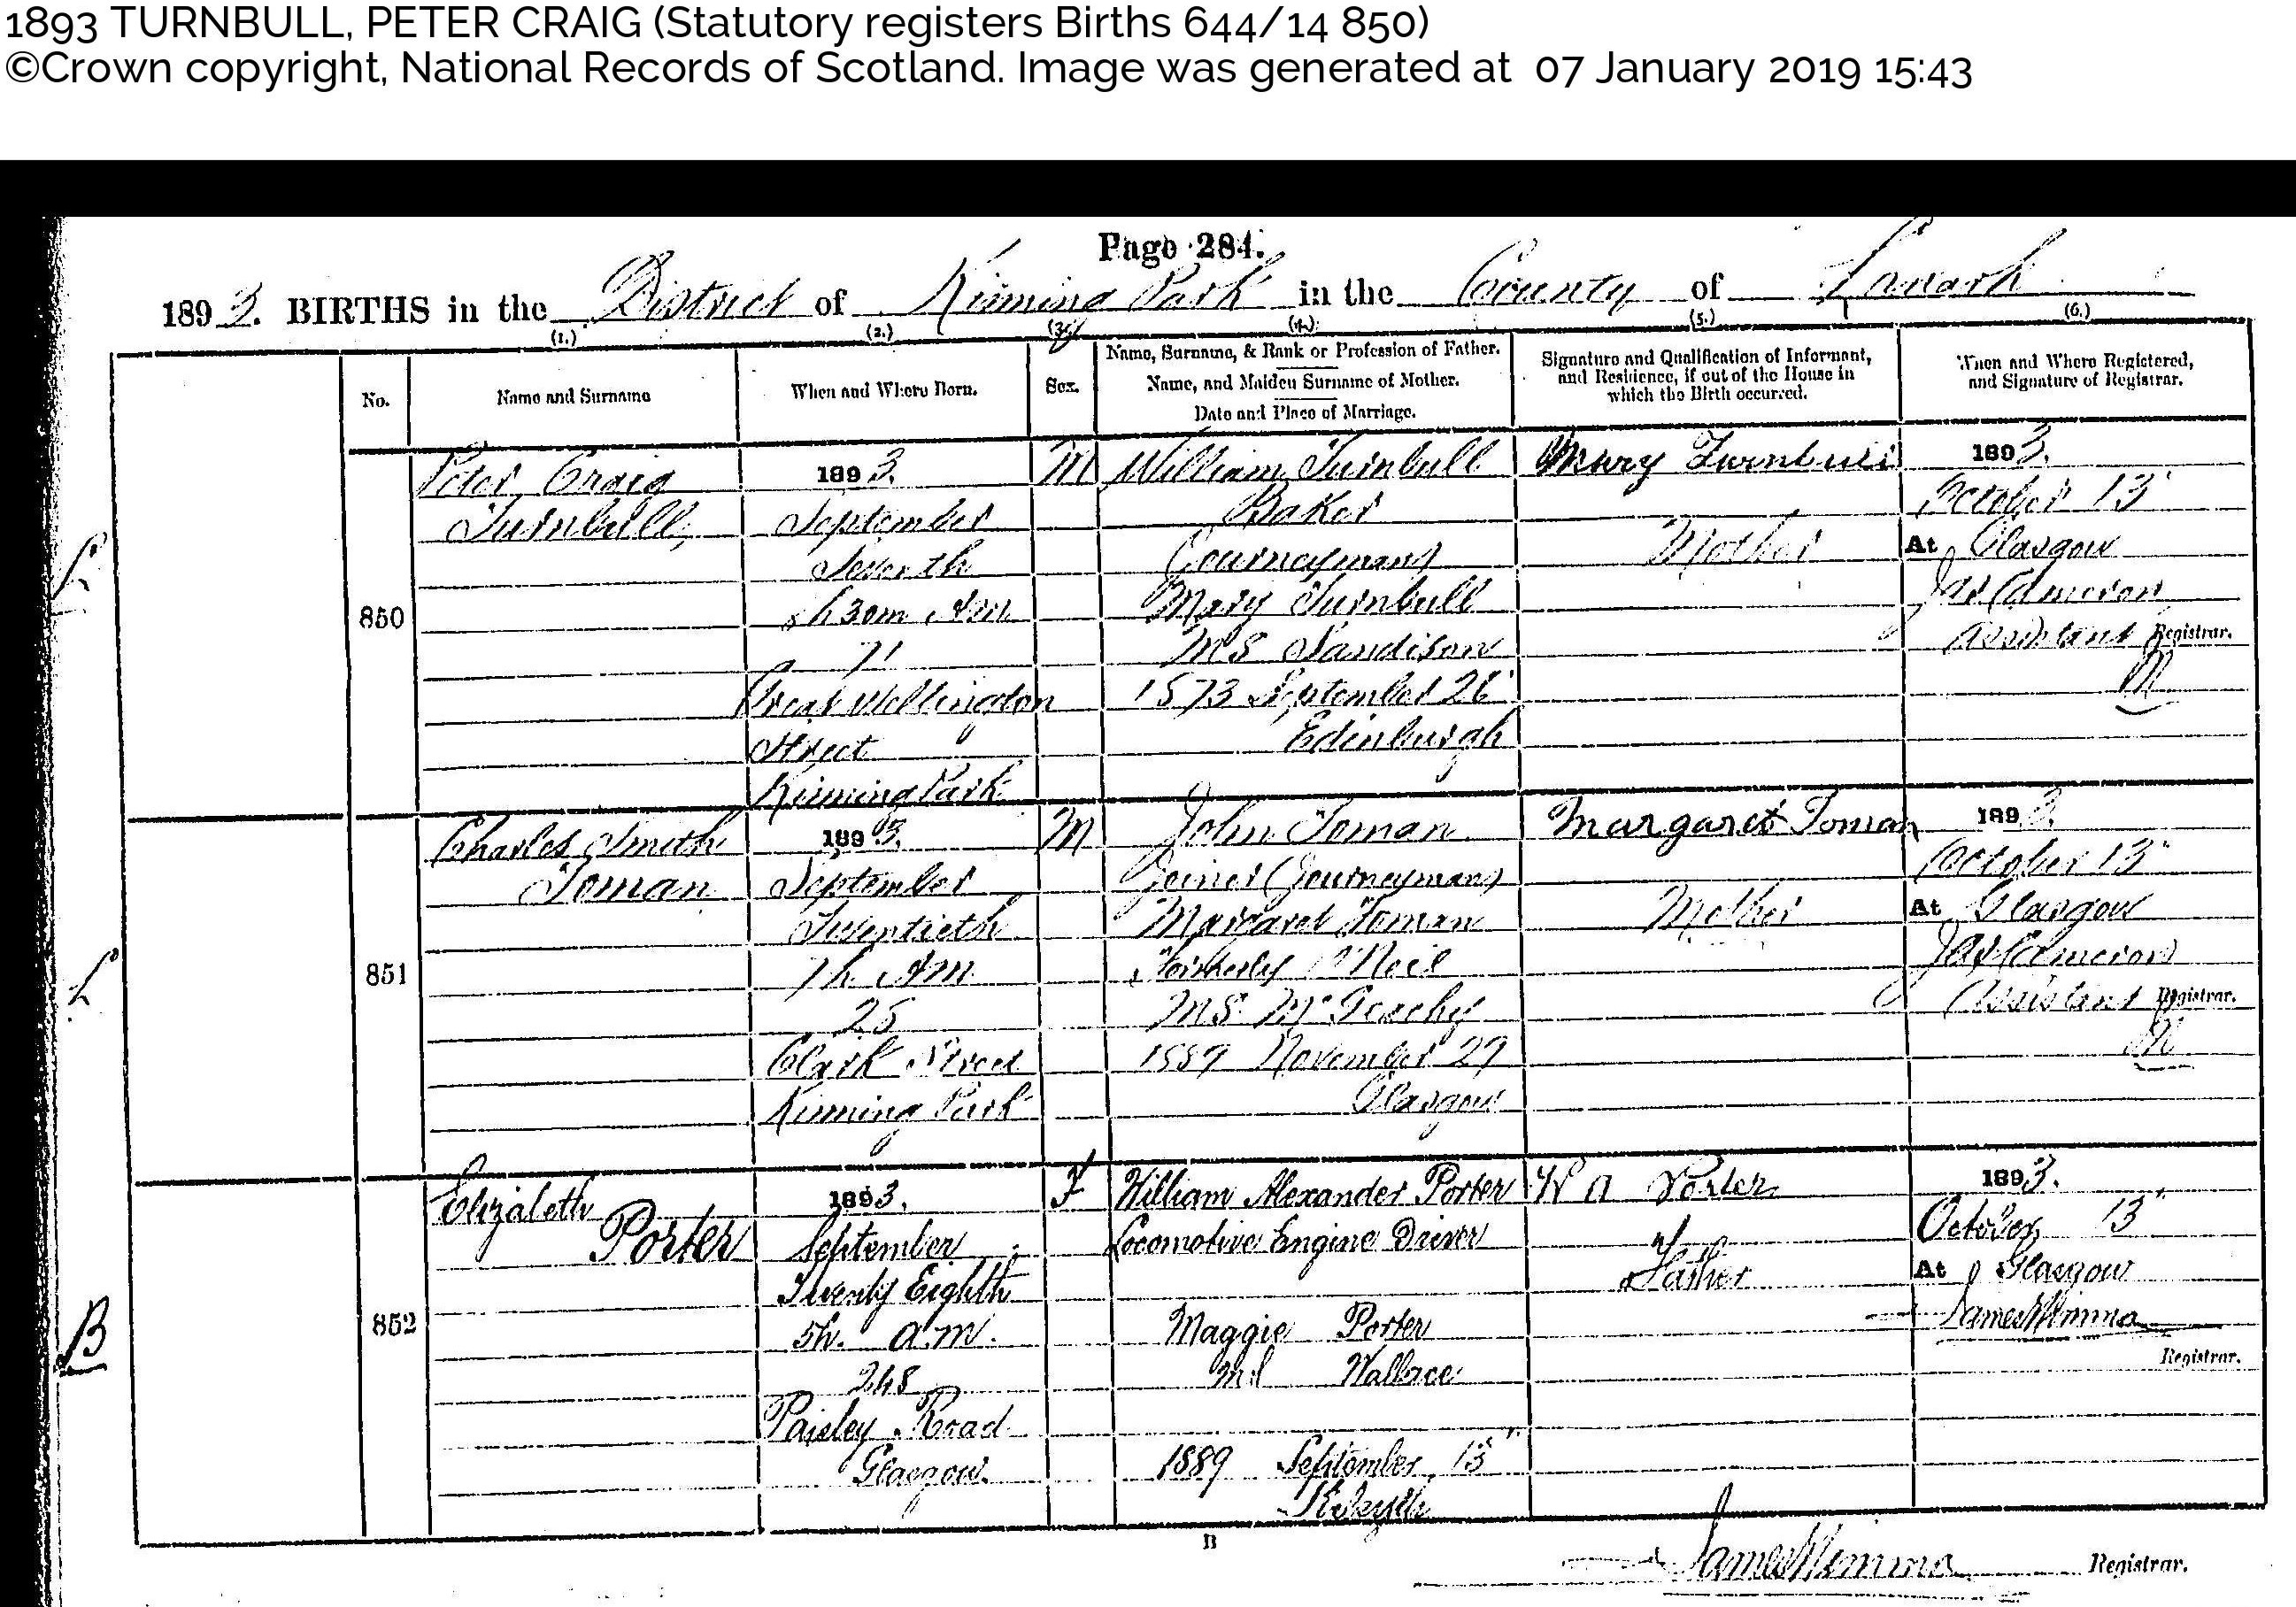 1893 TURNBULL, PETER CRAIG (Statutory registers Births 644/14 850)
©Crown copyright, National Records of Scotland. Image was generated at 07 January 2019 15:43
Page 284.
1893. BIRTHS in the District of Kinning Park in the County of Lanark
(1.) (2.) (3.) (4.) (5.) (6.)
No.
Name and Surname
When and Where Born.
Sex.
Name, Surname, & Rank or Profession of Father.
Name, and Maiden Surname of Mother.
Date and Place of Marriage.
Signature and Qualification of Informant,
and Residence, if out of the House in
which the Birth occurred.
When and Where Registered,
and Signature of Registrar.
850
Peter Craig
Turnbull
1893.
September
Seventh
h 30m AM
71
Great Wellington
Street
Kinning Park
M
William Turnbull
Baker
(Journeyman)
Mary Turnbull
MS Sandison
1873 September 26
Edinburgh
Mary Turnbull
Mother
1893.
October 13
At Glasgow
Jas Cameron
Assistant Registrar.
L
851
Charles Smith
Toman
1893.
September
Twentieth
7h AM
25
Clark Street
Kinning Park
M
John Toman
Joiner (Journeyman)
Margaret Toman
Formerly O'Neil
MS
1889 November 29
Glasgow
Margaret Toman
Mother
1893.
October 13"
At Glasgow
Jas Cameron
Assistant Registrar.
B
852
Elizabeth
Porter
1893.
September
Twenty Eighth
5h. a.m.
248
Paisley Road
Glasgow.
F
William Alexander Porter
Locomotive Engine Driver
Maggie Porter
m.s Wallace
1889 September 13"
Kilsyth
W A Porter
Father
1893.
October 13"
At Glasgow
James Mimma
Registrar.
B
James Mimma Registrar.